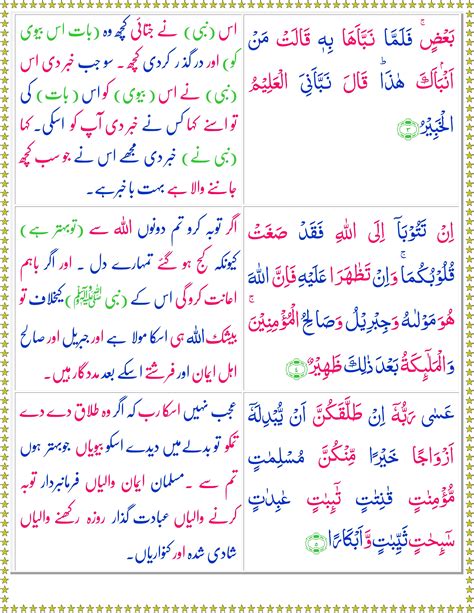 بَعۡضٍ ۚ فَلَمَّا نَبَّاَهَا بِهٖ قَالَتۡ مَنۡ
اَنۡۢبَاَكَ هٰذَا ؕ قَالَ نَبَّاَنِىَ الۡعَلِيۡمُ
الۡخَبِيۡرُ ﴿۳﴾
اس (نبی) نے جتائی کچھ وہ (بات اس بیوی
کو) اور درگذر کردی کچھ ۔ سو جب خبر دی اس
(نبی) نے اس (بیوی) کو اس (بات) کی
تو اسنے کہا کس نے خبر دی آپ کو اسکی۔ کہا
(نبی نے) خبر دی مجھے اس نے جو سب کچھ
جاننے والا ہے بہت با خبر ہے۔
اِنۡ تَتُوۡبَاۤ اِلَى اللّٰهِ فَقَدۡ صَغَتۡ
قُلُوۡبُكُمَا ۚ وَاِنۡ تَظٰهَرَا عَلَيۡهِ فَاِنَّ اللّٰهَ
هُوَ مَوۡلٰٮهُ وَجِبۡرِيۡلُ وَصَالِحُ الۡمُؤۡمِنِيۡنَ ۚ
وَالۡمَلٰٓٮِٕكَةُ بَعۡدَ ذٰلِكَ ظَهِيۡرٌ ﴿۴﴾
اگر توبہ کرو تم دونوں اللہ سے (تو بہتر ہے)
کیونکہ کج ہو گئے تمہارے دل ۔ اور اگر باہم
اعانت کرو گی اس کے (نبی ﷺ) کیخلاف تو
بیشک اللہ ہی اسکا مولا ہے اور جبریل اور صالح
اہل ایمان اور فرشتے اسکے بعد مددگار ہیں۔
عَسٰى رَبُّهٗۤ اِنۡ طَلَّقَكُنَّ اَنۡ يُّبۡدِلَهٗۤ
اَزۡوَاجًا خَيۡرًا مِّنۡكُنَّ مُسۡلِمٰتٍ
مُّؤۡمِنٰتٍ قٰنِتٰتٍ تٰٓٮِٕبٰتٍ عٰبِدٰتٍ
سٰٓٮِٕحٰتٍ ثَيِّبٰتٍ وَّاَبۡكَارًا ﴿۵﴾
عجب نہیں اسکا رب کہ اگر وہ طلاق دے دے
تمکو تو بدلے میں دیدے اسکو بیویاں جو بہتر ہوں
تم سے ۔ مسلمان ایمان والیاں فرمانبردار توبہ
کرنے والیاں عبادت گذار روزہ رکھنے والیاں
شادی شدہ اور کنواریاں۔